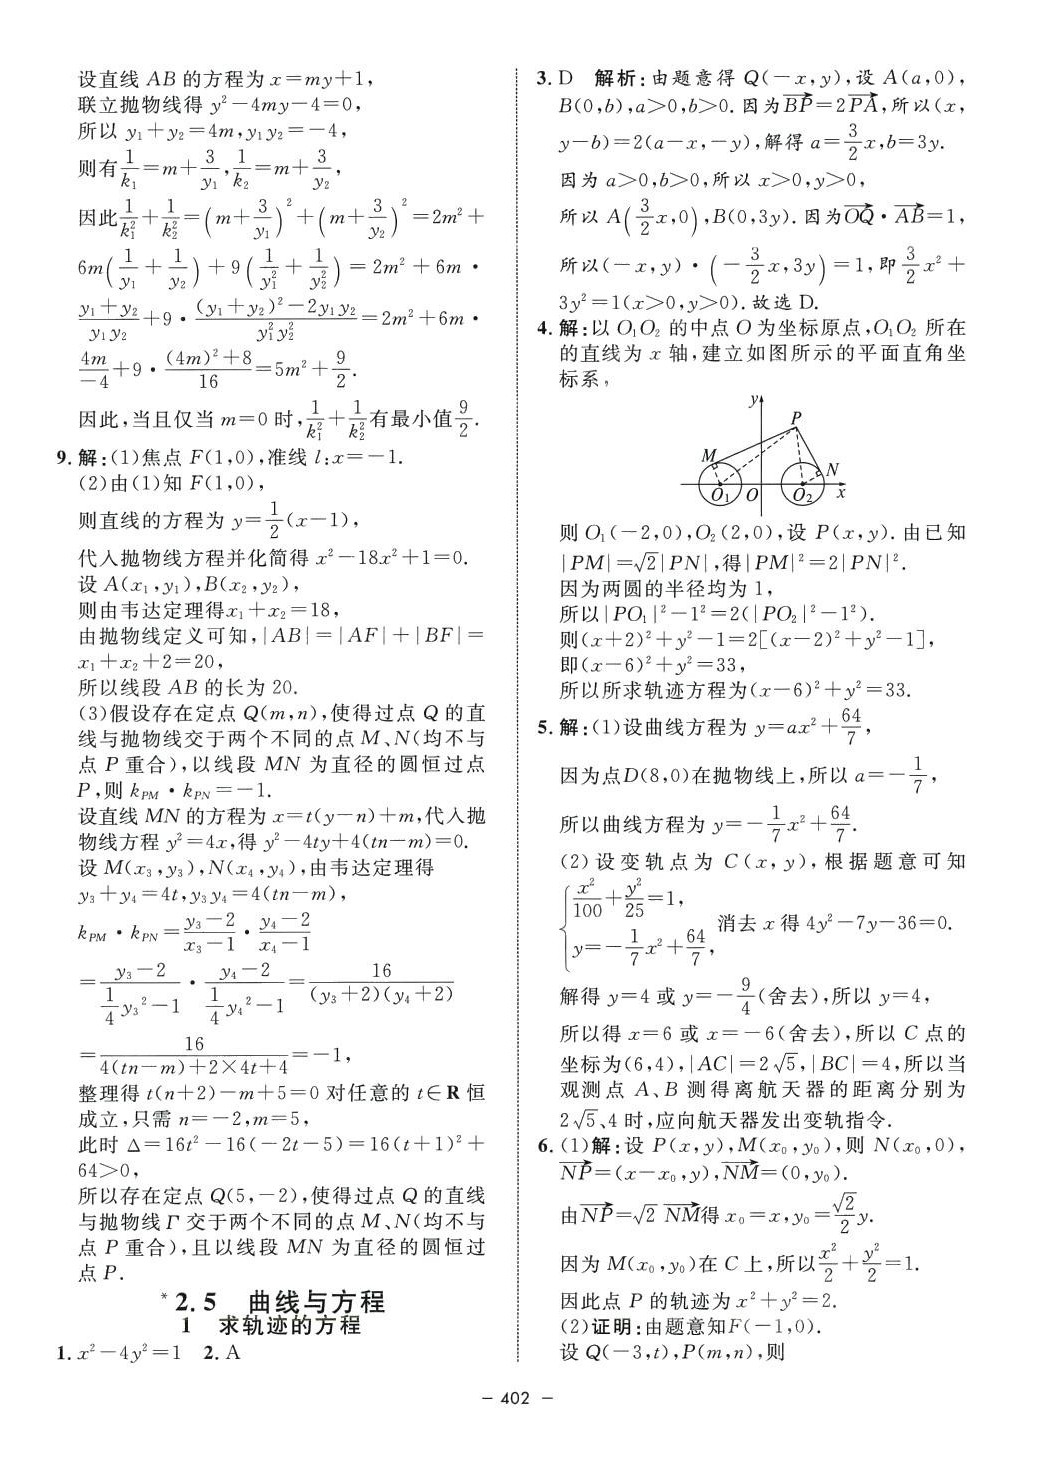 设直线 AB 的方程为 x=my+1,
联立抛物线得 y²-4my-4=0,
所以 y₁+y₂=4m,y₁y₂=-4,
则有1/k₁=m+3/y₁,1/k₂=m+3/y₂,
因此1/k₁²+1/k₂²=(m+3/y₁)²+(m+3/y₂)²=2m²+
6m(1/y₁+1/y₂)+9(1/y₁²+1/y₂²)=2m²+6m·
(y₁+y₂)/(y₁y₂)+9·((y₁+y₂)²-2y₁y₂)/(y₁²y₂²)=2m²+6m·
4m/(-4)+9·((4m)²+8)/16=5m²+9/2.
因此,当且仅当 m=0 时,1/k₁²+1/k₂²有最小值9/2.
9.解:(1)焦点 F(1,0),准线 l:x=-1.
(2)由(1)知 F(1,0),
则直线的方程为 y=1/2(x-1),
代入抛物线方程并化简得 x²-18x²+1=0.
设 A(x₁,y₁),B(x₂,y₂),
则由韦达定理得x₁+x₂=18,
由抛物线定义可知,|AB|=|AF|+|BF|=
x₁+x₂+2=20,
所以线段 AB 的长为 20.
(3)假设存在定点 Q(m,n),使得过点 Q 的直
线与抛物线交于两个不同的点 M、N(均不与
点 P 重合),以线段 MN 为直径的圆恒过点
P,则 k_PM·k_PN=-1.
设直线 MN 的方程为 x=t(y-n)+m,代入抛
物线方程 y²=4x,得 y²-4ty+4(tn-m)=0.
设 M(x₃,y₃),N(x₄,y₄),由韦达定理得
y₃+y₄=4t,y₃y₄=4(tn-m),
k_PM·k_PN=(y₃-2)/(x₃-1)·(y₄-2)/(x₄-1)
=(y₃-2)/(1/4y₃²-1)·(y₄-2)/(1/4y₄²-1)=16/((y₃+2)(y₄+2))
=16/(4(tn-m)+2×4t+4)=-1,
整理得 t(n+2)-m+5=0 对任意的 t∈R 恒
成立,只需 n=-2,m=5,
此时 Δ=16t²-16(-2t-5)=16(t+1)²+
64>0,
所以存在定点 Q(5,-2),使得过点 Q 的直线
与抛物线 Γ 交于两个不同的点 M、N(均不与
点 P 重合),且以线段 MN 为直径的圆恒过
点 P.
*2.5 曲线与方程
1 求轨迹的方程
1.x²-4y²=1 2.A
3.D 解析:由题意得 Q(-x,y),设 A(a,0),
B(0,b),a>0,b>0.因为BP→=2PA→,所以(x,
y-b)=2(a-x,-y),解得 a=3/2x,b=3y.
因为 a>0,b>0,所以 x>0,y>0,
所以 A(3/2x,0),B(0,3y).因为OQ→·AB→=1,
所以(-x,y)·(-3/2x,3y)=1,即3/2x²+
3y²=1(x>0,y>0).故选 D.
4.解:以 O₁O₂ 的中点 O 为坐标原点,O₁O₂ 所在
的直线为 x 轴,建立如图所示的平面直角坐
标系,
y
P
M
N
O₁ O O₂ x
则 O₁(-2,0),O₂(2,0),设 P(x,y).由已知
|PM|=√2|PN|,得|PM|²=2|PN|².
因为两圆的半径均为 1,
所以|PO₁|²-1²=2(|PO₂|²-1²).
则(x+2)²+y²-1=2[(x-2)²+y²-1],
即(x-6)²+y²=33,
所以所求轨迹方程为(x-6)²+y²=33.
5.解:(1)设曲线方程为 y=ax²+64/7,
因为点D(8,0)在抛物线上,所以 a=-1/7,
所以曲线方程为 y=-1/7x²+64/7.
(2)设变轨点为 C(x,y),根据题意可知
{x²/100+y²/25=1,
y=-1/7x²+64/7, 消去 x 得 4y²-7y-36=0.
解得 y=4 或 y=-9/4(舍去),所以 y=4,
所以得 x=6 或 x=-6(舍去),所以 C 点的
坐标为(6,4),|AC|=2√5,|BC|=4,所以当
观测点 A、B 测得离航天器的距离分别为
2√5、4 时,应向航天器发出变轨指令.
6.(1)解:设 P(x,y),M(x₀,y₀),则 N(x₀,0),
NP→=(x-x₀,y),NM→=(0,y₀).
由NP→=√2 NM→得 x₀=x,y₀=√2/2y.
因为 M(x₀,y₀)在 C 上,所以x²/2+y²/2=1.
因此点 P 的轨迹为 x²+y²=2.
(2)证明:由题意知F(-1,0).
设 Q(-3,t),P(m,n),则
- 402 -